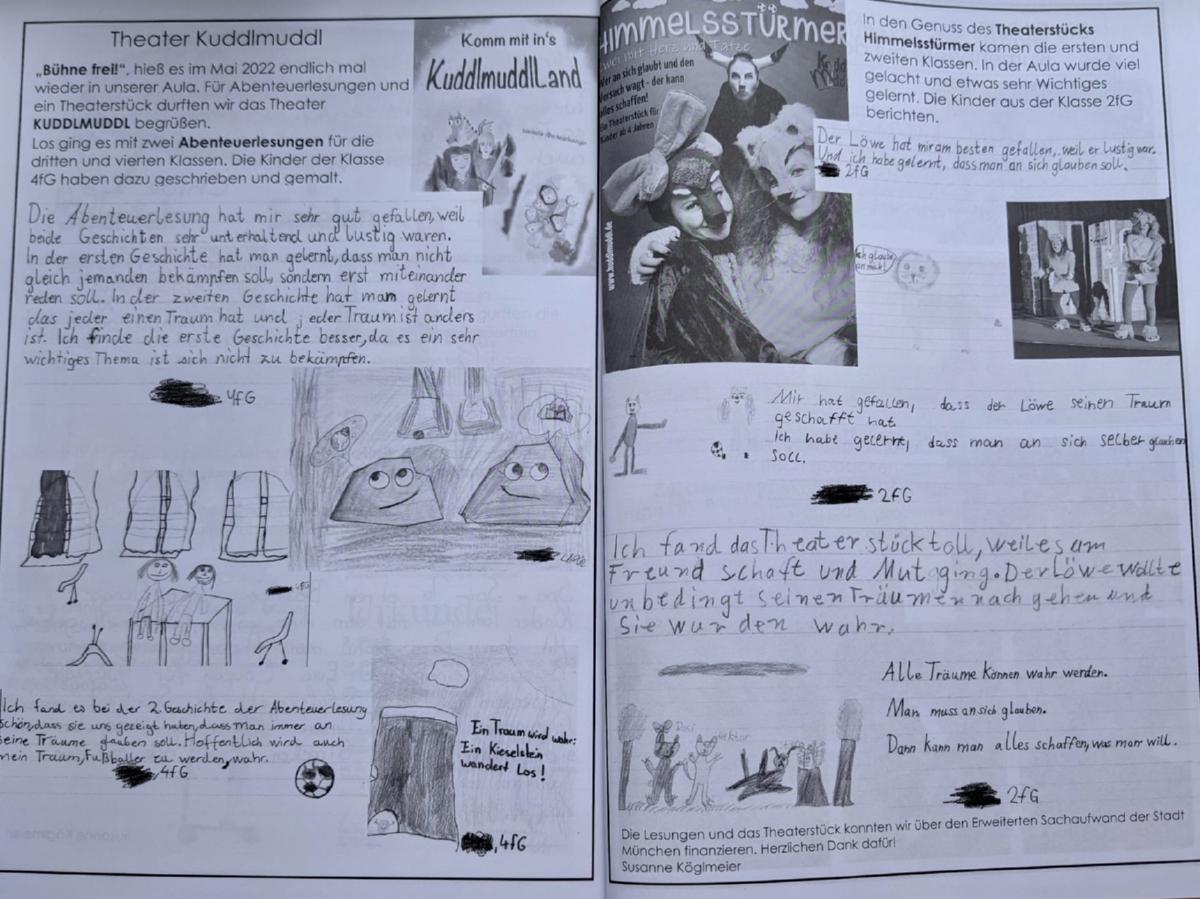 Theater Kuddlmuddl
„Bühne frei!“, hieß es im Mai 2022 endlich mal
wieder in unserer Aula. Für Abenteuerlesungen und
ein Theaterstück durften wir das Theater
KUDDLMUDDL begrüßen.
Los ging es mit zwei Abenteuerlesungen für die
dritten und vierten Klassen. Die Kinder der Klasse
4fG haben dazu geschrieben und gemalt.
Komm mit in's
KuddlmuddlLand
Die Abenteuerlesung hat mir sehr gut gefallen, weil
beide Geschichten sehr unterhaltend und lustig waren.
In der ersten Geschichte hat man gelernt, dass man nicht
gleich jemanden bekämpfen soll, sondern erst miteinander
reden soll. In der zweiten Geschichte hat man gelernt
das jeder einen Traum hat und jeder Traum ist anders
ist. Ich finde die erste Geschichte besser, da es ein sehr
wichtiges Thema ist sich nicht zu bekämpfen.
4fG
Ich fand es bei der 2. Geschichte der Abenteuerlesung
schön, dass sie uns gezeigt haben, dass man immer an
seine Träume glauben soll. Hoffentlich wird auch
mein Traum, Fußballer zu werden, wahr.
, 4fG
Ein Traum wird wahr:
Ein Kieselstein
wandert Los!
, 4fG
HIMMELSSTÜRMER
Zwei mit Herz und Tatze
Wer an sich glaubt und den
Versuch wagt - der kann
alles schaffen!
Ein Theaterstück für
Kinder ab 4 Jahren
www.kuddlmuddl.de
In den Genuss des Theaterstücks
Himmelsstürmer kamen die ersten und
zweiten Klassen. In der Aula wurde viel
gelacht und etwas sehr Wichtiges
gelernt. Die Kinder aus der Klasse 2fG
berichten.
Der Löwe hat mir am besten gefallen, weil er lustig war.
Und ich habe gelernt, dass man an sich glauben soll.
2fG
Ich glaube
an mich!
Mir hat gefallen, dass der Löwe seinen Traum
geschafft hat.
Ich habe gelernt, dass man an sich selber glauben
soll.
2fG
Ich fand das Theaterstück toll, weil es um
Freundschaft und Mut ging. Der Löwe wollte
unbedingt seinen Träumen nach gehen und
Sie wurden wahr.
Alle Träume können wahr werden.
Man muss an sich glauben.
Dann kann man alles schaffen, was man will.
2fG
Die Lesungen und das Theaterstück konnten wir über den Erweiterten Sachaufwand der Stadt
München finanzieren. Herzlichen Dank dafür!
Susanne Köglmeier